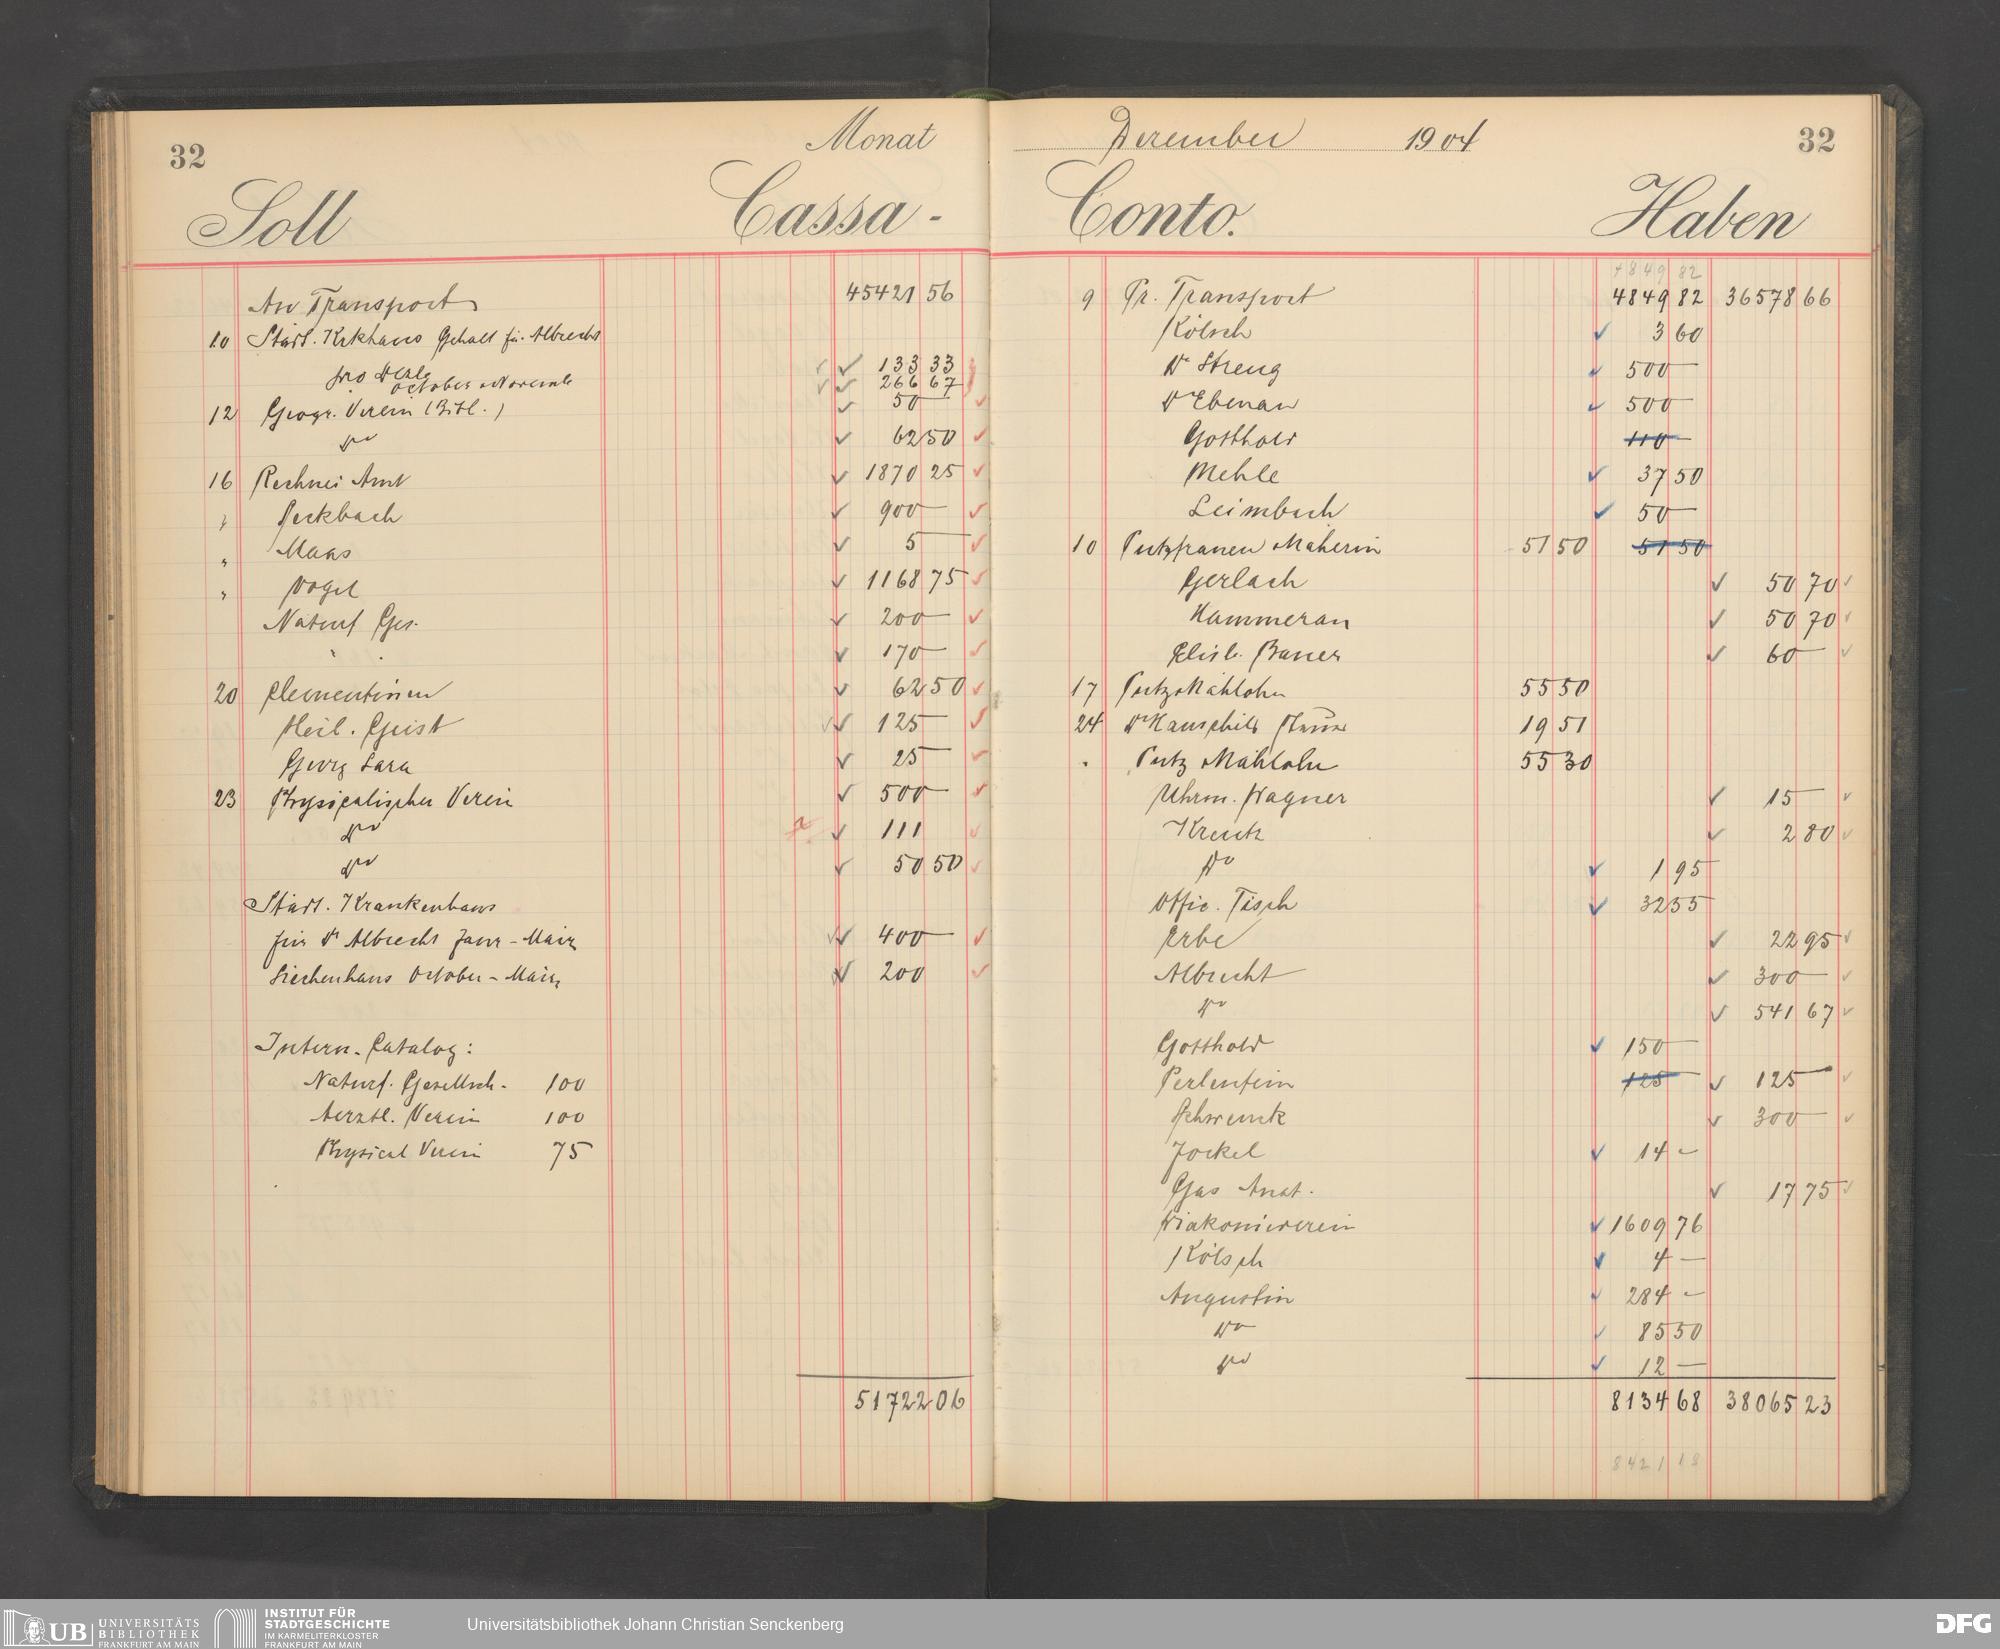 32
Monat
Soll
Cassa-
An Transport 45421 56
10 Städt. Krkhaus Gehalt für Albrecht
pro Dezbr 133 33
October & Novembr 266 67
12 Geogr. Verein (Bibl.) 50 —
do 62 50
16 Rechnei Amt 1870 25
" Beckbach 900 —
" Maas 5 —
" Vogel 1168 75
Naturf Ges. 200 —
" . 170 —
20 Clementinen 62 50
Heil. Geist 125 —
Georg Sara 25 —
23 Physicalischer Verein 500 —
do 111
do 50 50
Städt. Krankenhaus
für Dr Albrecht Janr - März 400 —
Siechenhaus October - März 200
Intern. Catalog:
Naturf. Gesellsch. 100
Aerztl. Verein 100
Physical Verein 75
51722 06
December 1904
32
Conto.
Haben
4849 82
9 Pr. Transport 4849 82 36578 66
Kölsch 3 60
Dr Streng 500 —
Dr Ebenau 500 —
Gotthold 110 —
Mehle 37 50
Leimbach 50 —
10 Putzfrauen & Näherin 51 50 51 50
Gerlach 50 70
Hammeran 50 70
Elisb. Bauer 60 —
17 Putz & Nählohn 55 50
24 Dr 19 51
" Putz & Nählohn 55 30
Uhrm. Wagner 15 —
Kreutz 2 80
do 1 95
Offic. Tisch 32 55
Erbe 22 95
Albrecht 300 —
do 541 67
Gotthold 150 —
Perlenfein 125 — 125 —
Schwenck 300 —
Jockel 14 —
Gas Anst. 17 75
Diakonieverein 1609 76
Kölsch 4 —
Augustin 284 —
do 85 50
do 12 —
8134 68 38065 23
8421 18
UB UNIVERSITÄTS
BIBLIOTHEK
FRANKFURT AM MAIN
INSTITUT FÜR
STADTGESCHICHTE
IM KARMELITERKLOSTER
FRANKFURT AM MAIN
Universitätsbibliothek Johann Christian Senckenberg
DFG